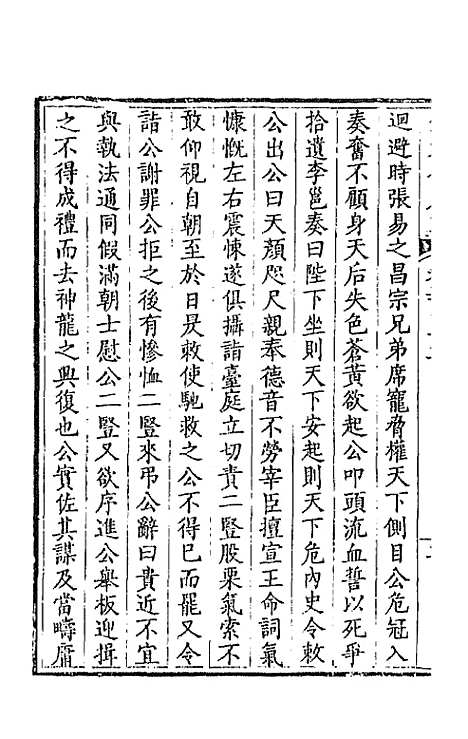 迴避時張易之昌宗兄弟席寵脅權天下側目公危冠入
奏奮不顧身天后失色蒼黃欲起公叩頭流血誓以死爭
拾遺李邕奏曰陛下坐則天下安起則天下危內史令敕
公出公曰天顏咫尺親奉德音不勞宰臣擅宣王命詞氣
慷慨左右震悚遂俱攝詣臺庭立切責二豎股栗氣索不
敢仰視自朝至於日昃敕使馳救之公不得已而罷又令
詣公謝罪公拒之後有慘恤二豎來弔公辭曰貴近不宜
與執法通同假滿朝士慰公二豎又欲序進公舉板迎揖
之不得成禮而去神龍之興復也公實佐其謀及當疇庸